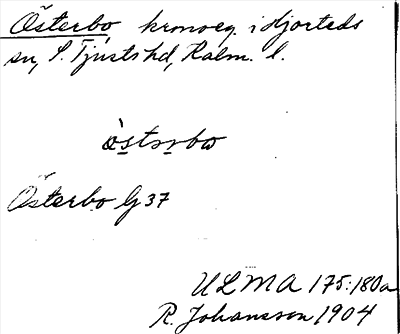 Österbo, kronoeg. i Hjorteds
sn, S. Tjusts hd, Kalm. l.
östərbω
Österbo G 37
ULMA 175:180a
R. Johansson 1904